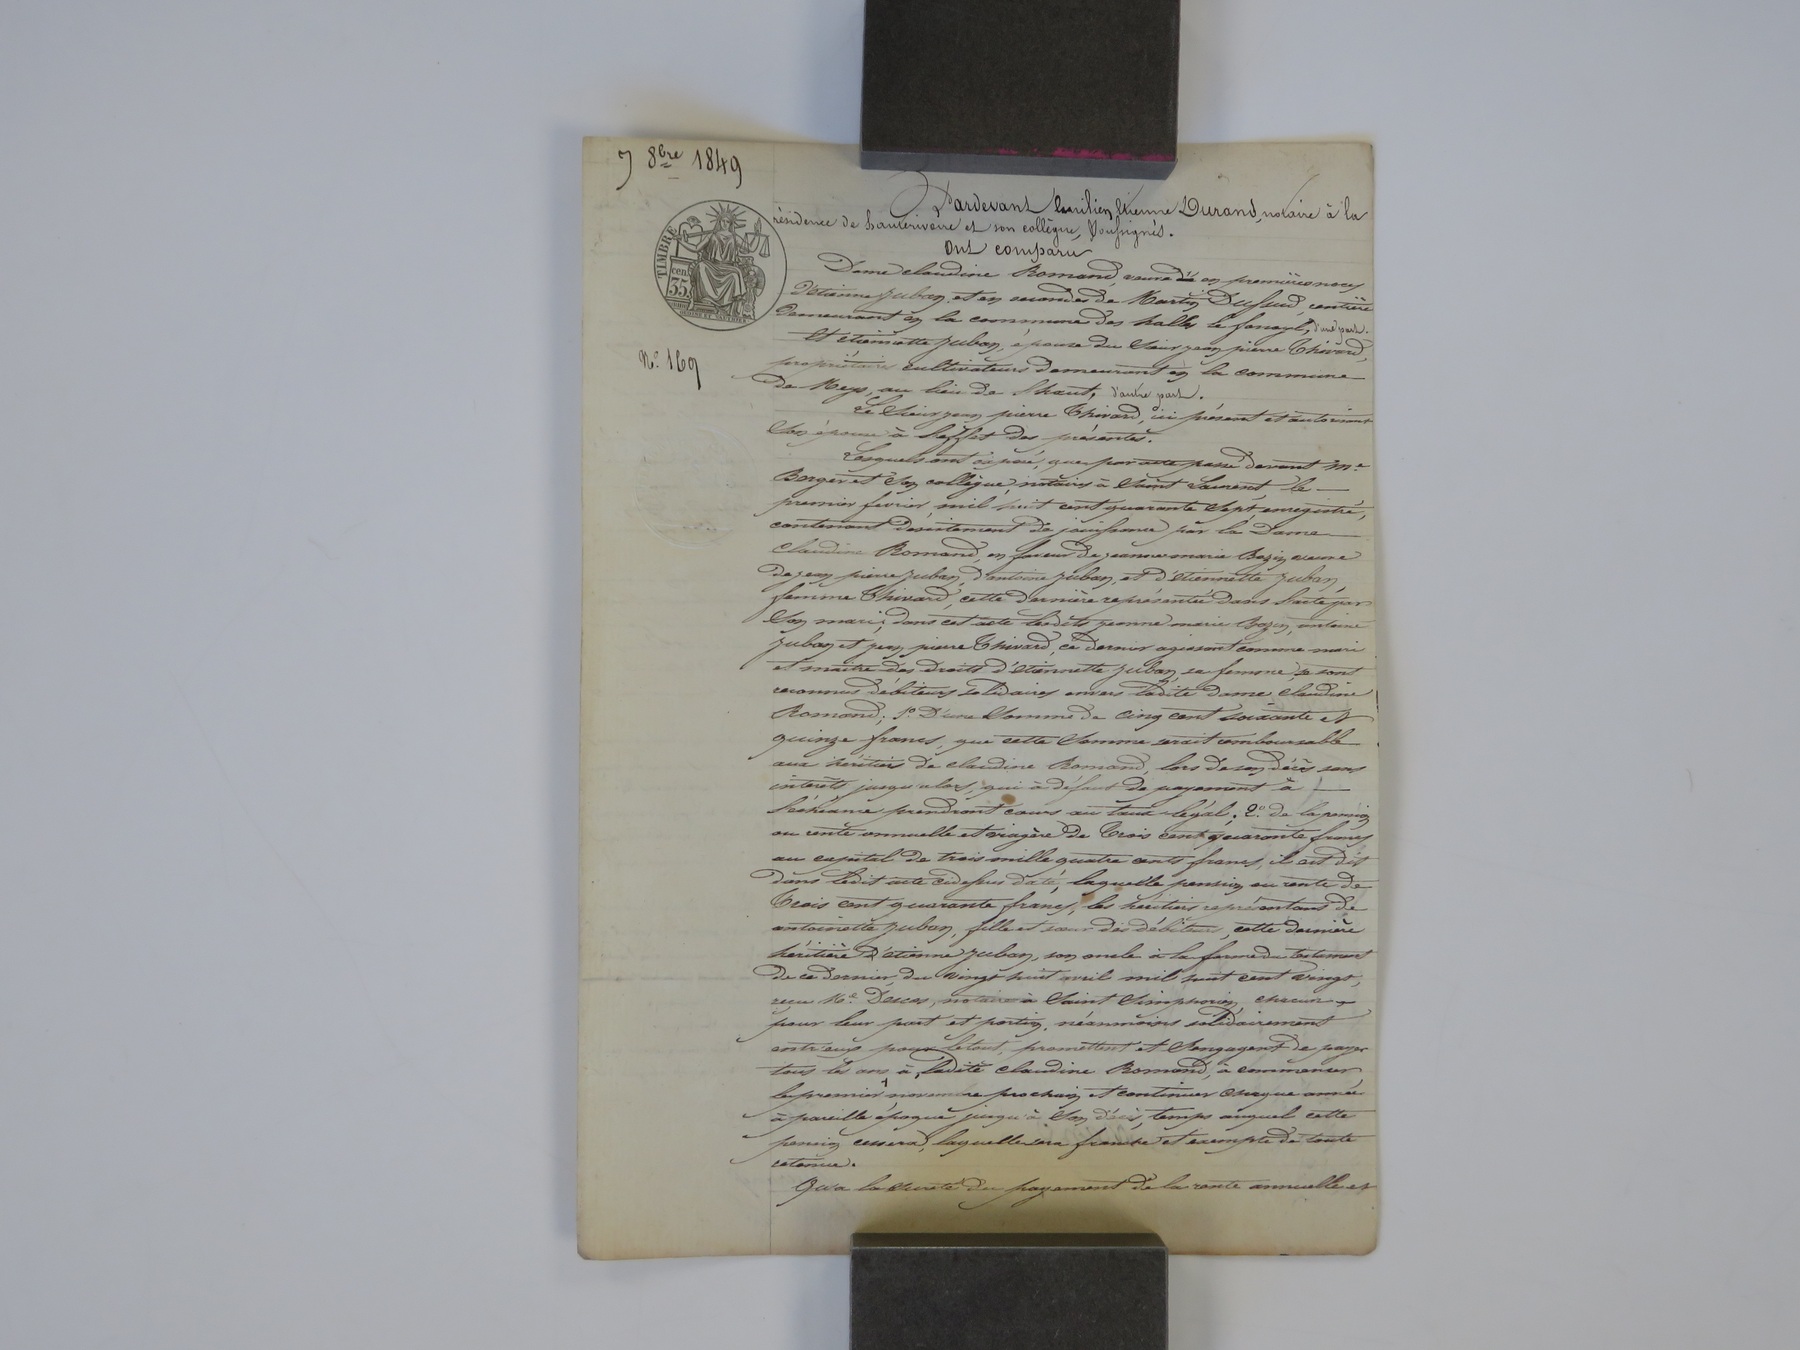 7 8bre 1849
TIMBRE
cen.
35
No. 169
Pardevant Emilien Etienne Durand, notaire à la
résidence de hauterivoire et son collègue, Soussignés.
Ont comparu
Dame claudine Romand, veuve en premières noces
d'étienne Juban, et en secondes de Martin Dussud, rentière
demeurant en la commune des halles le fenoyl, d'une part.
Et étiennette Juban, épouse du Sieur jean pierre Thivard,
propriétaires cultivateurs demeurant en la commune
de Meys, au lieu de d'autre part.
Le Sieur jean pierre Thivard, ici présent et autorisant
Son épouse à l'effet des présentes.
Lesquels ont exposé, que par acte passé devant Me
Berger et Son collègue, notaires à Saint Laurent le
premier fevrier mil huit cent quarante Sept, enregistré,
contenant desistement de jouissance par la Dame
Claudine Romand, en faveur de jeanne marie Bazin veuve
de jean pierre Juban, d'antoine Juban, et d'étiennette Juban,
femme Thivard, cette dernière représentée dans l'acte par
Son mari; dans cet acte lesdits jeanne marie Bazin, antoine
Juban et jean pierre Thivard, ce dernier agissant comme mari
et maître des droits d'étiennette Juban, sa femme, se sont
reconnus débiteurs solidaires envers ladite dame claudine
Romand; 1o. D'une Somme de cinq cent soixante et
quinze francs, que cette Somme serait remboursable
aux héritiers de claudine Romand, lors de son décès sans
intérêts jusqu'alors, qui à défaut de payement à
l'échéance prendront cours au taux légal; 2o. de la pension
ou rente annuelle et viagère de Trois cent quarante francs
au capital de trois mille quatre cents francs, il est dit
dans ledit acte cidessus daté, laquelle pension ou rente de
Trois cent quarante francs, les héritiers représentans de
antoinette Juban, fille et sœur des débiteurs, cette dernière
héritière d'étienne Juban, son oncle à la forme du testament
de ce dernier, du vingt huit avril mil huit cent vingt,
reçu Me. Descos, notaire à Saint Simphorien, chacun
pour leur part et portion, néanmoins solidairement
entr'eux pour le tout, promettent et S'engagent de payer
tous les ans à ladite claudine Romand, à commencer
le premier novembre prochain et continuer chaque année
à pareille époque jusqu'à Son décès, temps auquel cette
pension cessera, laquelle sera franche et exempte de toute
retenue.
Qu'a la sureté du payement de la rente annuelle et